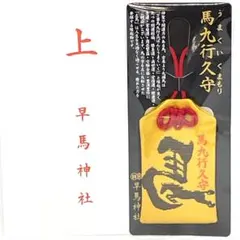 上
早馬神社
うまくいくまもり
馬九行久守
馬九行久守
馬
早馬神社